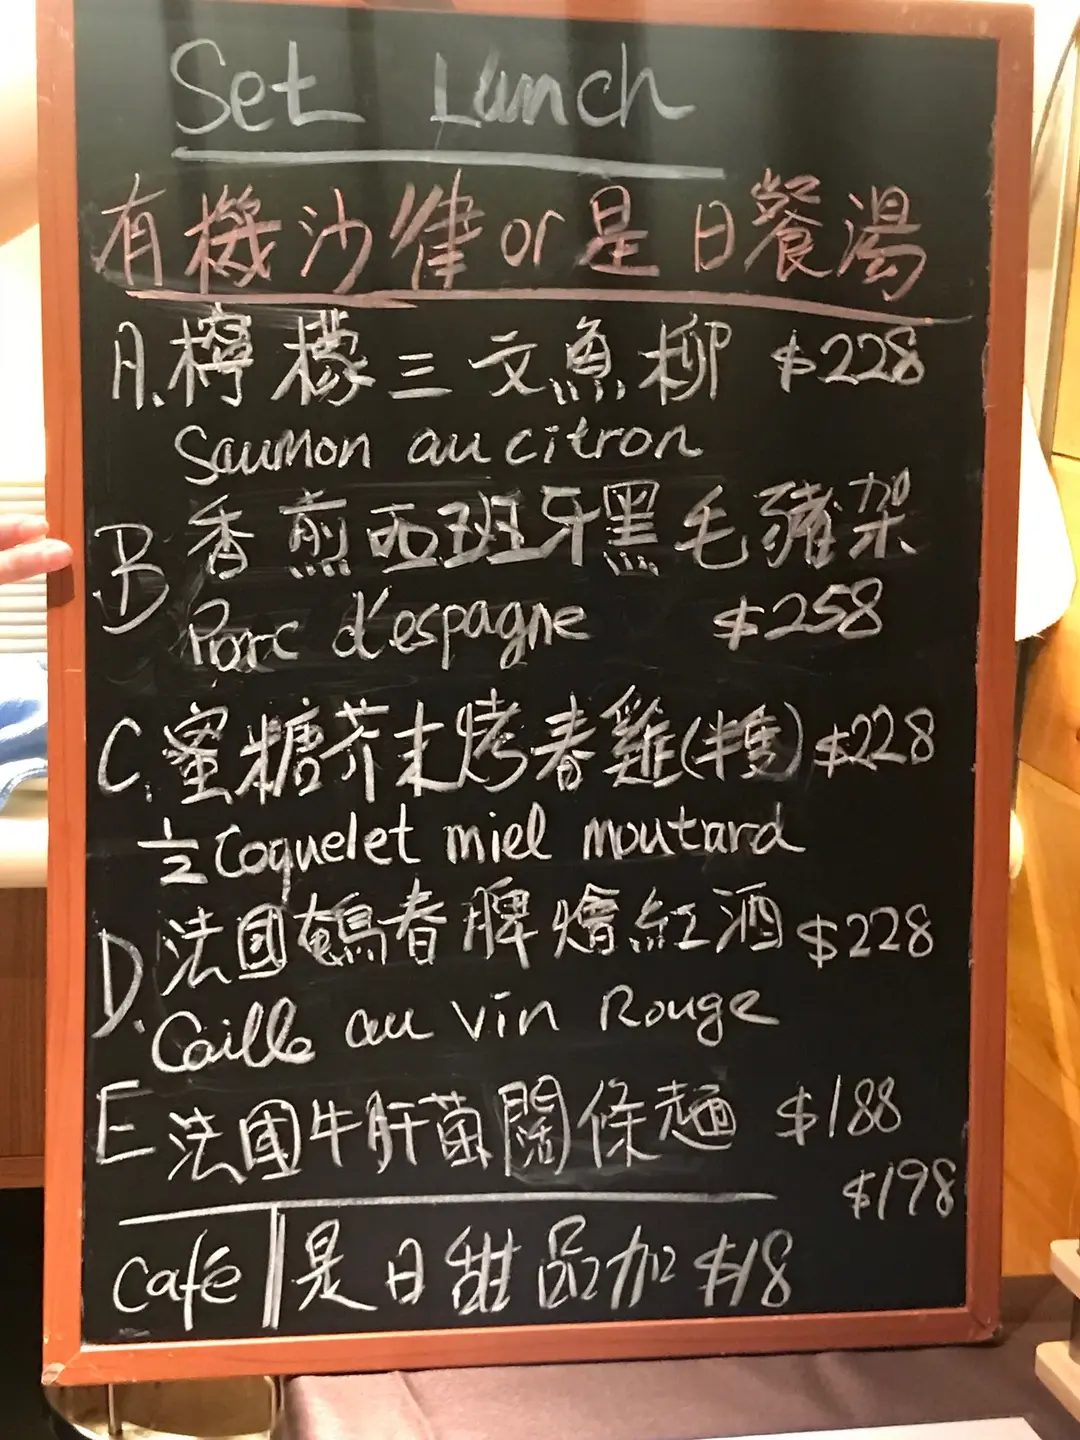 Set Lunch
有機沙律or是日餐湯
A.檸檬三文魚柳 $228
Saumon au citron
B 香煎西班牙黑毛豬架
Porc d'espagne $258
C.蜜糖芥末烤春雞(半隻) $228
½ Coquelet miel moutard
D.法國鵪春脾燴紅酒 $228
Caille au vin Rouge
E 法國牛肝菌闊條麵 $188
$198
Café || 是日甜品加 $18